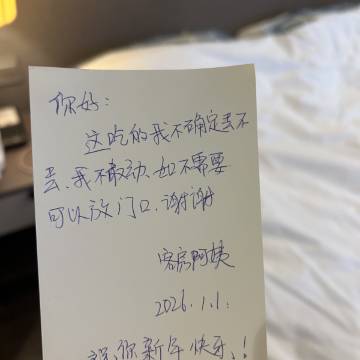 你好:
这吃的我不确定丢不
丢、我不敢动、如不需要
可以放门口、谢谢
客房阿姨
2026.1.1.
祝你新年快乐!